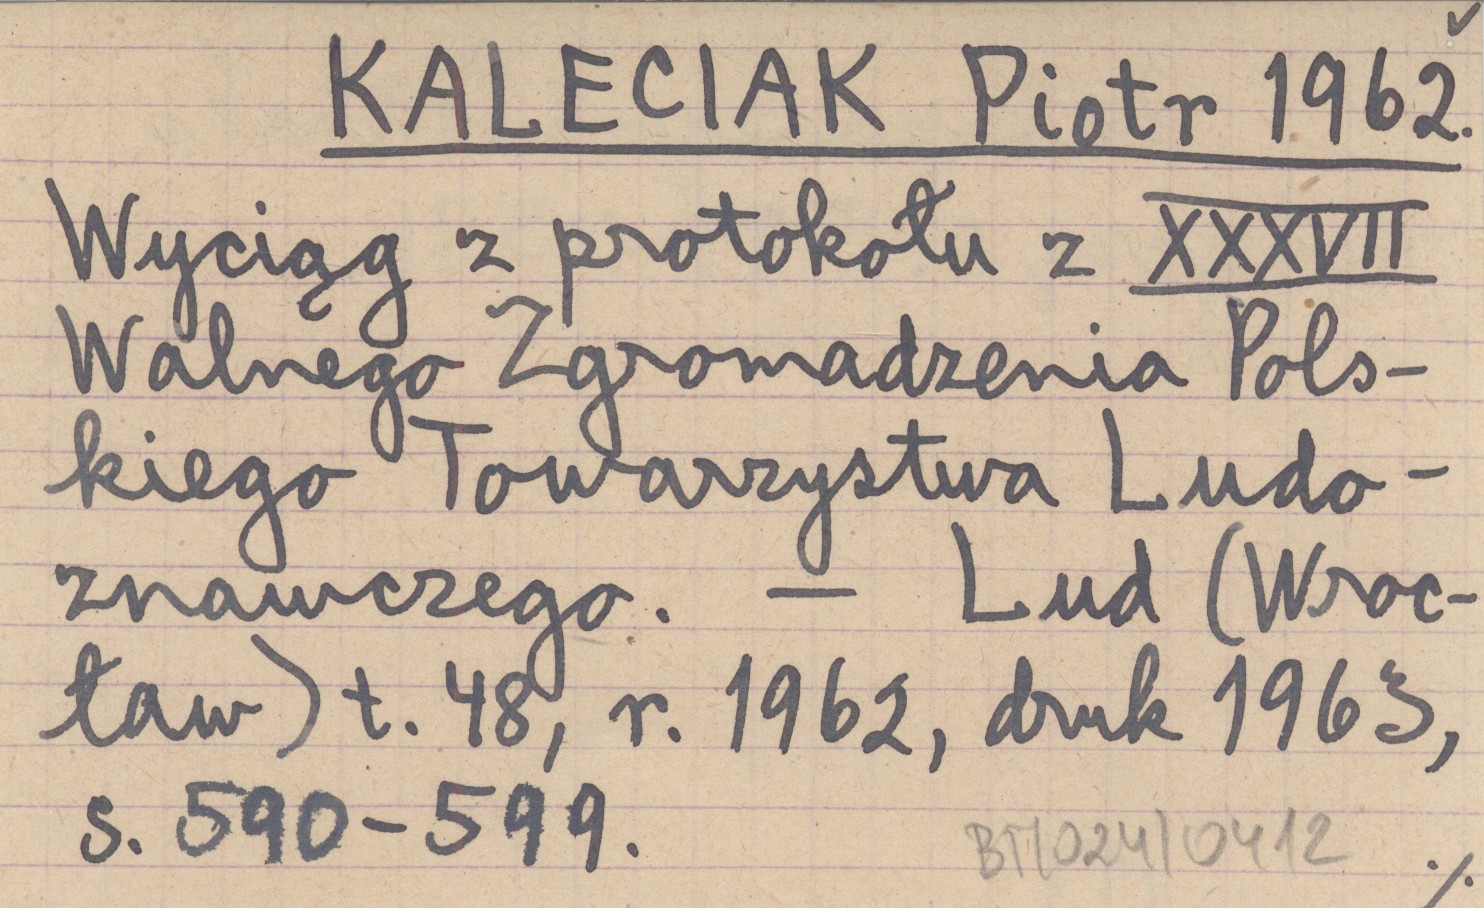 KALECIAK Piotr 1962.
Wyciąg z protokołu z XXXVII
Walnego Zgromadzenia Pols-
kiego Towarzystwa Ludo-
znawczego. — Lud (Wroc-
ław) t. 48, r. 1962, druk 1963,
s. 590-599.
BT/024/0412
./.